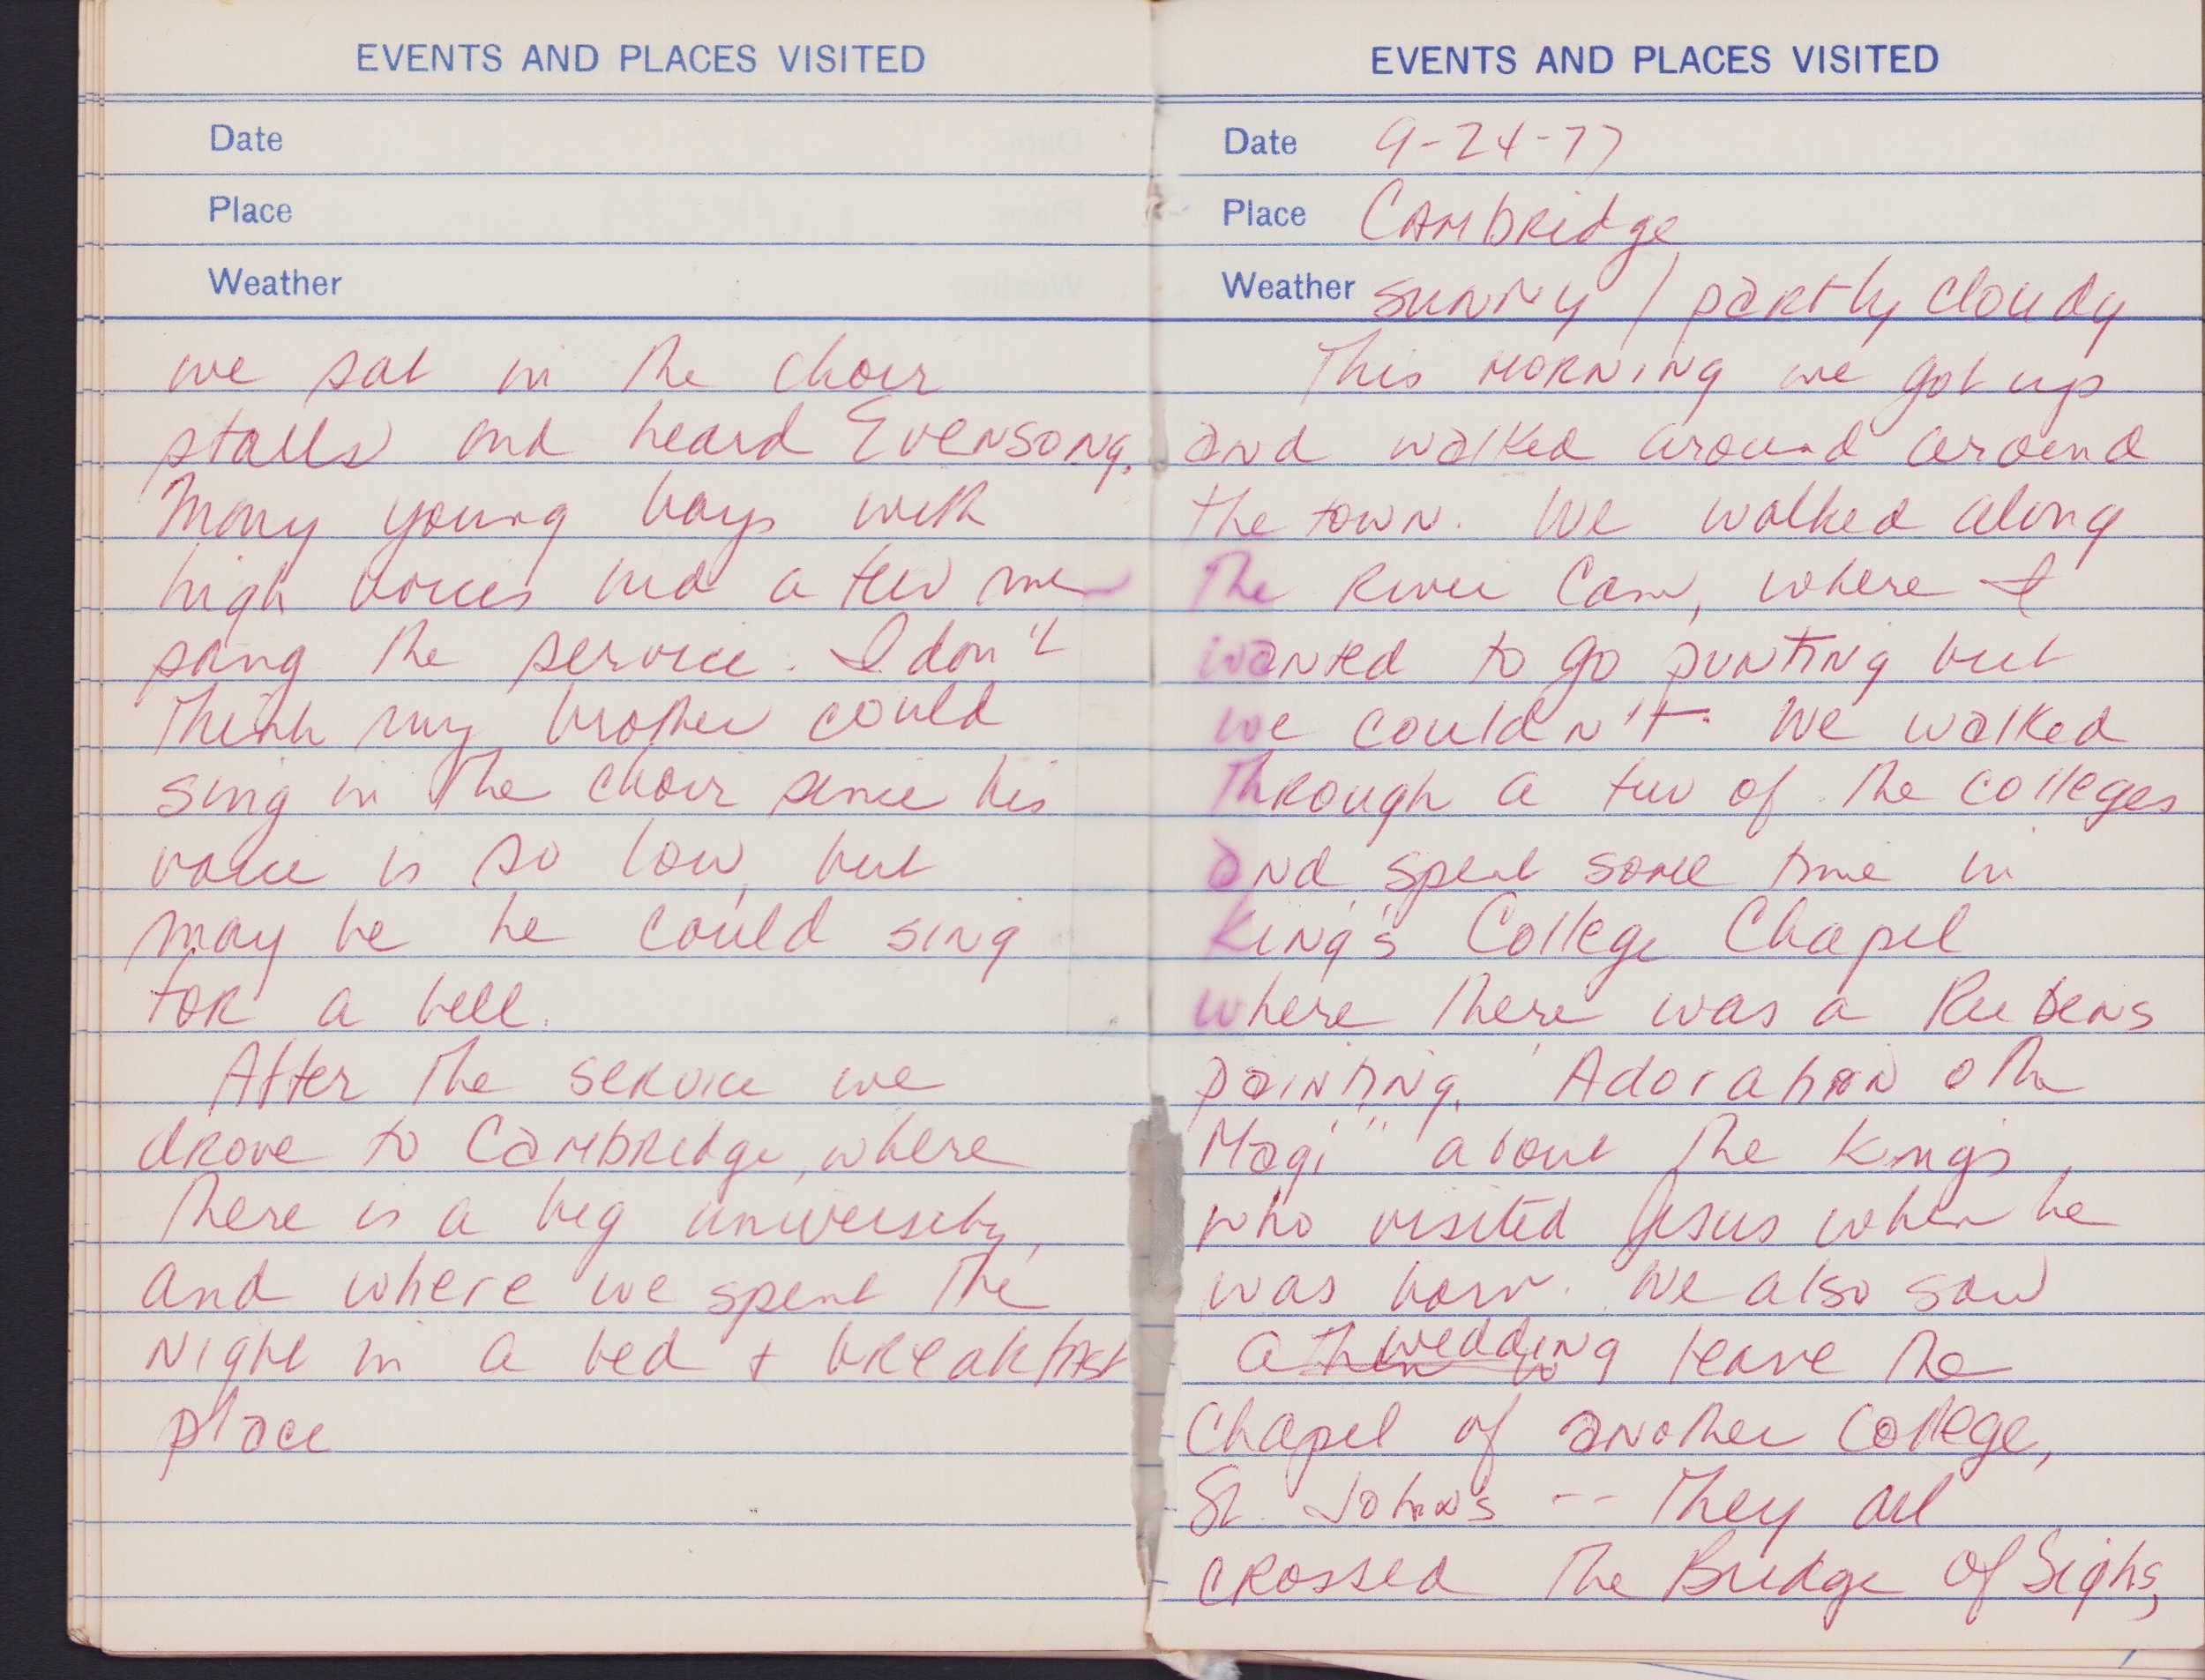 EVENTS AND PLACES VISITED
Date
Place
Weather
we sat in the choir
stalls and heard Evensong.
Many young boys with
high voices and a few men
sang the service. I don't
think my brother could
sing in the choir since his
voice is so low, but
may be he could sing
for a bell.
After the service we
drove to Cambridge, where
there is a big university,
and where we spent the
night in a bed + breakfast
place
EVENTS AND PLACES VISITED
Date 9-24-77
Place Cambridge
Weather sunny / partly cloudy
This morning we got up
and walked around around
the town. We walked along
the River Cam, where I
wanted to go punting but
we couldn't. We walked
through a few of the colleges
and spent some time in
King's College Chapel
where there was a Rubens
painting, "Adoration o the
Magi" about the kings,
who visited Jesus when he
was born. We also saw
a wedding leave the
Chapel of another College,
St. John's -- They all
crossed the Bridge of Sighs,